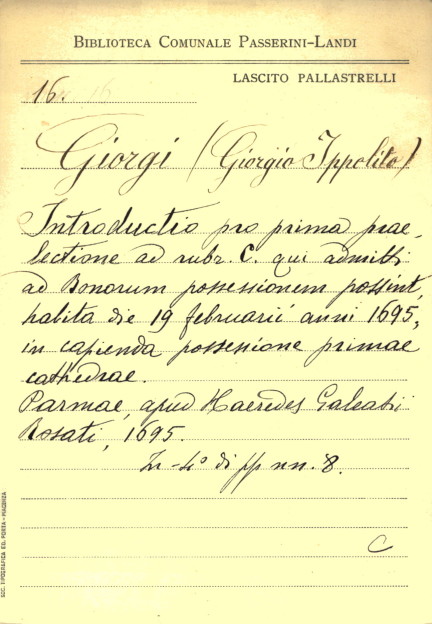 BIBLIOTECA COMUNALE PASSERINI-LANDI
LASCITO PALLASTRELLI
16.
Giorgi (Giorgio Ippolito)
Introductio pro prima prae-
lectione ad rubr. C. qui admitti
ad Bonorum possessionem possint,
habita die 19 februarii anni 1695,
in capienda possessione primae
cathedrae.
Parmae, apud Haeredes Galeatii
Rosati, 1695.
In-4º di pp nn. 8.
C
SOC. TIPOGRAFICA ED. PORTA - PIACENZA